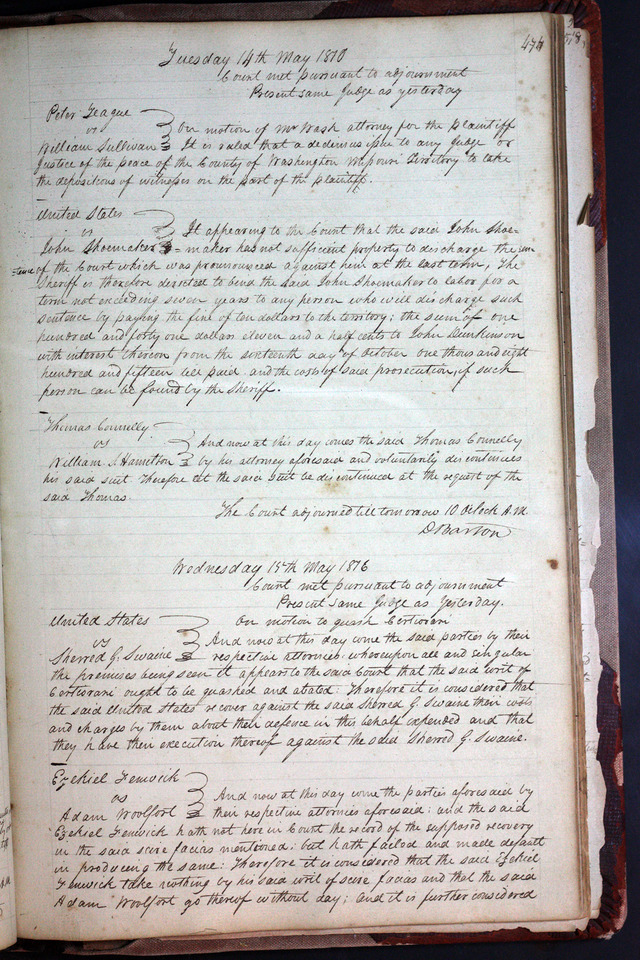 474
Tuesday 14th May 1816
Court met pursuant to adjournment
Present same Judge as yesterday
Peter Teague
vs
William Sullivan } On motion of Mr Wash attorney for the plaintiff
It is ruled that a dedimus issue to any Judge or
Justice of the peace of the County of Washington Missouri Territory to take
the depositions of witnesses on the part of the plaintiff.
United States
vs
John Shoemaker } It appearing to the Court that the said John Shoe-
=maker has not sufficient property to discharge the sen
tence of the Court which was pronounced against him at the last term, The
Sheriff is therefore directed to bind the said John Shoemaker to labor for a
term not exceeding seven years to any person who will discharge such
sentence by paying the fine of ten dollars to the territory; the sum of one
hundred and forty one dollars eleven and a half cents to John Dunkinson
with interest thereon from the sixteenth day of October one thousand eight
hundred and fifteen till paid and the costs of said prosecution, if such
person can be found by the Sheriff.
Thomas Connelly
vs
William S. Hamilton } And now at this day comes the said Thomas Connelly
by his attorney aforesaid and voluntarily discontinues
his said suit Therefore let the said suit be discontinued at the request of the
said Thomas.
The Court adjourned till tomorrow 10 Oclock A.M.
D Barton
Wednesday 15th May 1816
Court met pursuant to adjournment
Present same Judge as Yesterday.
United States
vs
Sherred G. Swaine } On motion to quash Certiorari
And now at this day come the said parties by their
respective attornies whereupon all and singular
the premises being seen it appears to the said Court that the said writ of
Certiorari ought to be quashed and abated: Therefore it is considered that
the said United States recover against the said Sherred G. Swaine their costs
and charges by them about their defence in this behalf expended and that
they have their execution thereof against the said Sherred G. Swaine.
Ezekiel Fenwick
vs
Adam Woolfort } And now at this day come the parties aforesaid by
their respective attornies aforesaid: and the said
Ezekiel Fenwick hath not here in Court the record of the supposed recovery
in the said scire facias mentioned: but hath failed and made default
in producing the same: Therefore it is considered that the said Ezekiel
Fenwick take nothing by his said writ of scire facias and that the said
Adam Woolfort go thereof without day; and it is further considered